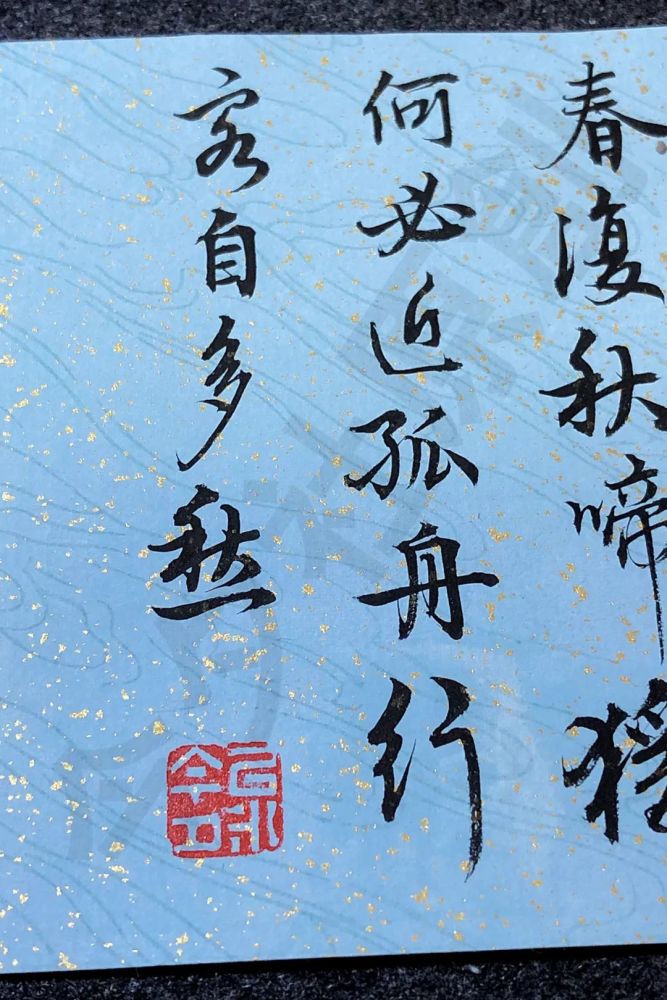 春復秋啼猿
何必近孤舟行
客自多愁